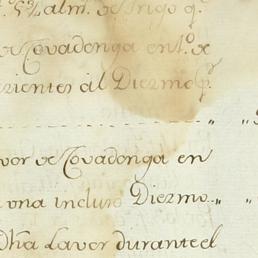 5½ alm.s de trigo q.e
de Covadonga en t.o de
rientes al Diezmo p.r
vor de Covadonga en
una incluso Diezmo
Dha Lavor durante el